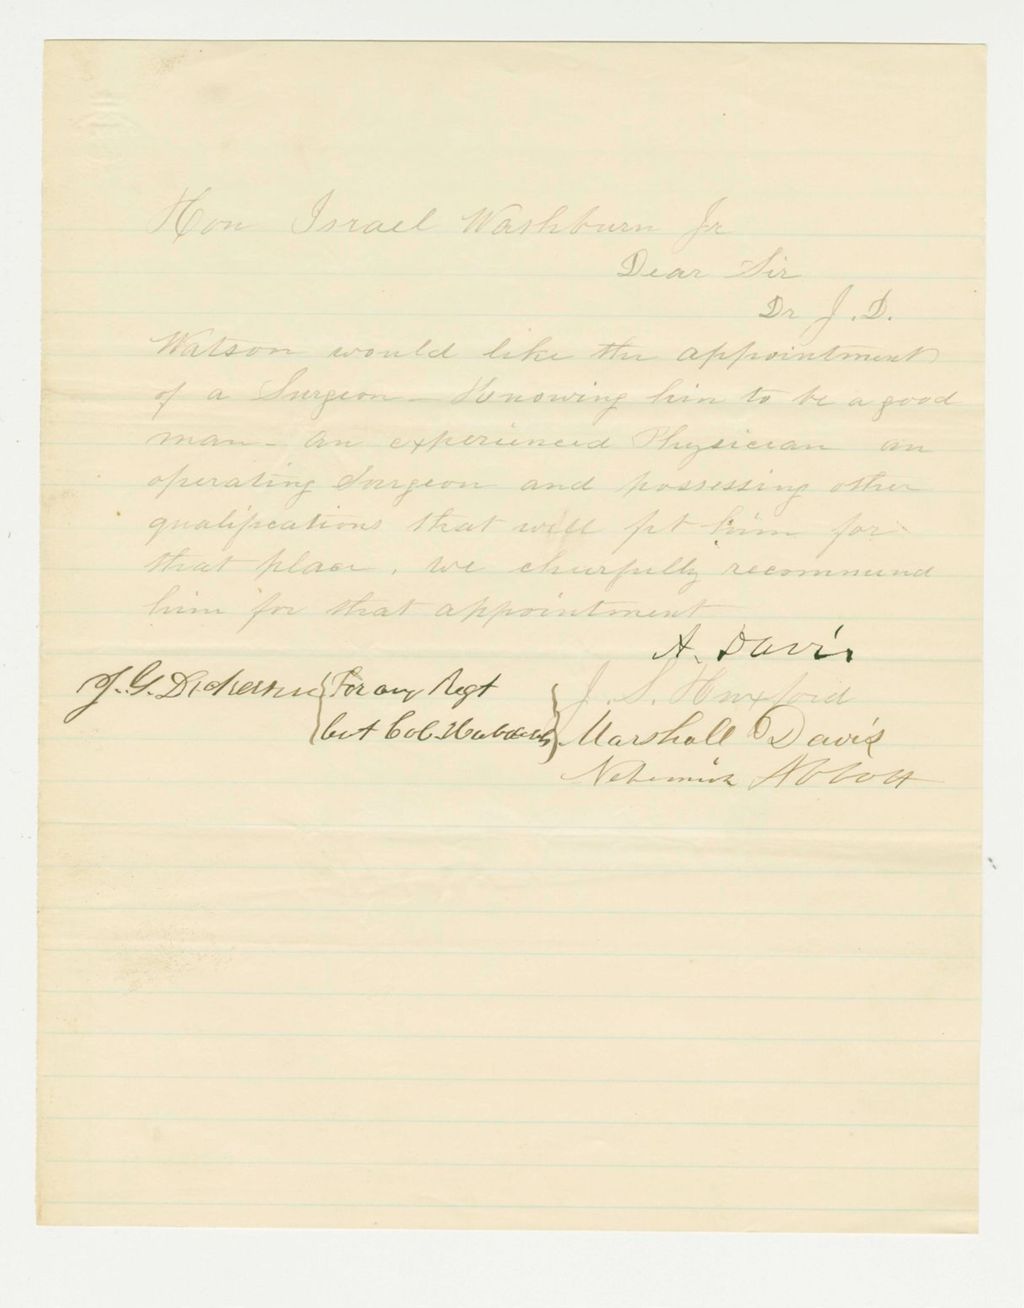 Hon Israel Washburn Jr
Dear Sir
Dr J. D.
Watson would like the appointment
of a Surgeon - Knowing him to be a good
man - an experienced Physician an
operating Surgeon and possessing other
qualifications that will fit him for
that place, we cheerfully recommend
him for that appointment
A. Davis
J. S. Huxford
J. G. Dickerson For any Regt
but Col. Hubbards Marshall Davis
Nehemiah Abbott